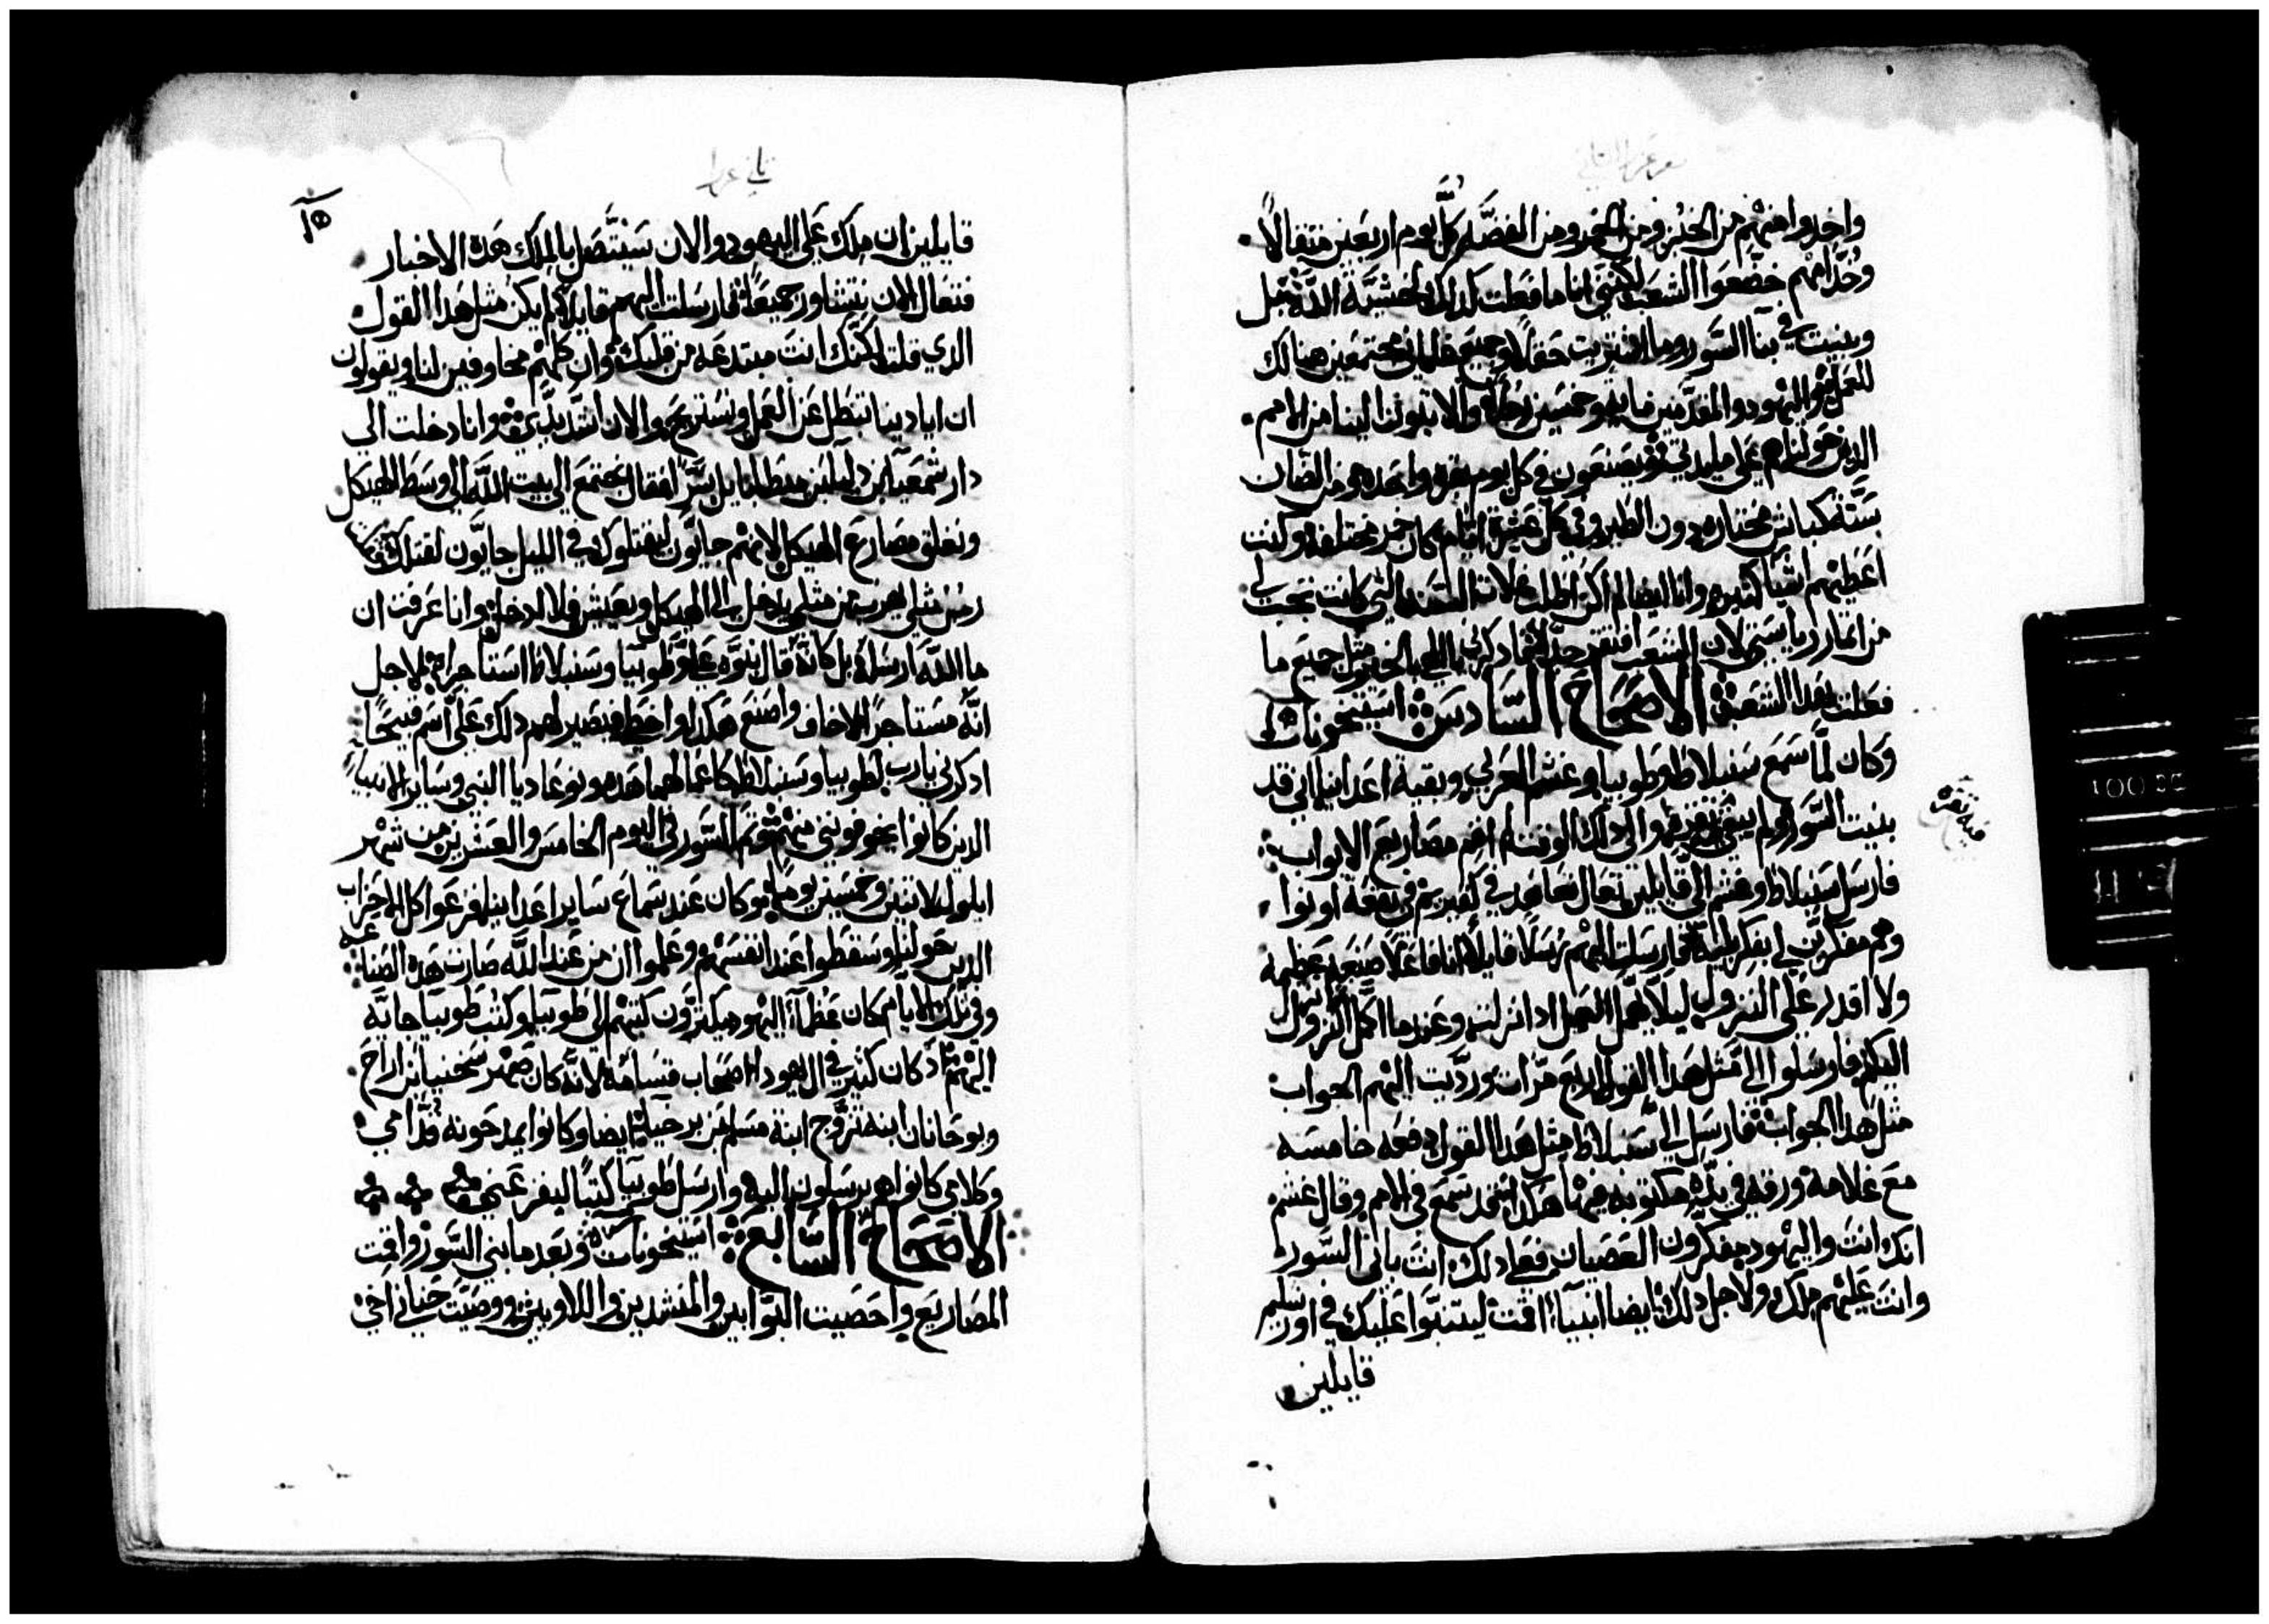 سفر عزرا الثاني
واخدوا منهم من الخبز ومن الخمر ومن الفضَّه كلَّ يوم اربعين متقالاً
وخُدَّامهم خضَّعوا الشعب لكنني انا ما فعلت كدلك لخشيَّة اللَّه بل
وبنيت في بنا السَّور وما اشتريت حقلاً وجميع غلماني مجتمعين هنالك
للعمل واليهود والمقدَّمين مايه وخمسين رجلاً والاتون الينا من الامم
الدين حولنا هم على مايدتي ويصنعون في كل يوم بقره واحده ومن الضان
ستَّة كباش مختاره دون الطير وفي كلَّ عشرة ايَّام كان خمر مختلفه وكنت
اعطيهم اشيا كثيره وانا ايضا لم اكن اطلب غلات السنه التي كانت تجب لي
من اتمار رياستي لان الشعب افتقر جدّا فادكرني يا اللهي الخير مثل جميع ما
فعلت بهدا الشعب الاصحاح السَّادس استيخونات
وكان لَّما سمع سنبلاط وطوبيا وغشم العربي وبقية اعداينا اني قد
بنيت السَّور ولم يبقى فيه تغره والى دلك الوقت لم اقم مصاريع الابواب
فيه تغره
فارسل سنبلاط وغشم اليَّ قايلين تعال نعاهد في كفيريم في بقعة اونوا
وهم مفكريَّن لي بفكر ليه فارسلت اليهم رسلاً قايلاً انا فاعلاً صنعه عظيمه
ولا اقدر على النزول ليلا يهمل العمل ادا نزلت وعندما اكمَّل انزل
اليكم فارسلوا الي مثل هدا القول اربع مرَّات وردَّيت اليهم الجواب
مثل هدا الجواب فارسل اليَّ سنبلاط مثل هدا القول دفعه خامسه
مع غلامه ورقه في يدَّه مكتوبه فيها هكدا قد سمع في الامم وقال غشم
انك انت واليهود مفكرون العصيان فعلى دلك انت باني السَّور
وانت عليهم ملك ولاجل دلك ايضا انبياًا اقمت ليتنبوا عليك في اورشليم
قايلين
تاني عزرا
قايلين ان ملك على اليهود والان سيتَّصل بالملك هده الاخبار
فتعال الان نتشاور جميعًا فارسلت اليهم قايلاً لم يكن مثل هدا القول
الدي قلت لكنَّك انت مبتدعه من قلبك وان كلهم مخاوفين لنا ويقولون
ان ايادينا تبطل عن العمل وتستريح والان اشدد يديَّ وانا دخلت الي
دار شمعيا ابن دلايا ابن ميطابايل سرًّا فقال نجتمع الي بيت اللَّه الى وسط الهيكل
ونغلق مصاريع الهيكل لانهم جايُّون ليقتلوك في الليل جايُّون لقتلك فقلت
رجل مثلي يهرب من مثلي يدخل الى الهيكل ويعيش فلا ادخل وانا عرفت ان
ما اللَّه ارسله بل كانَّه قال نبوَّه عليَّ وطوبيا وسنبلاط استاجراه لاجل
انَّه مستاجرًا لاخاف واصنع هكدا واخطي فيصير لهم دلك علىَّ اسم قبيحًا
ادكرني يارب لطوبيا وسنبلاط كاعمالهما هده ونوعاديا النبي وساير الانبياء
الدين كانوا يخوفونني منهم وتم السَّور في اليوم الخامس والعشرين من شهر
ايلول لاتنين وخمسين يوماً وكان عند سماع ساير اعداينا فزعوا كل الاحزاب
الدين حولنا وسقطوا عند انفسهم وعلموا ان من عند اللَّه صارت هده الصناعه
وفي تلك الايَّام كان عظماًا اليهود يكترون كتبهم الى طوبيا وكتب طوبيا جايَّه
اليهم اد كان كثير في ال يهودا اصحاب قسامه لانه كان صهر سخنيا بن اراح
ويوحانان ابنه تزوَّج ابنة مسلم بن برخيا ايضا وكانوا يمدحونه قدَّامي
وكلامي كانوا هم يرسلون اليه وارسل طوبيا كتبًا ليفزعني
الاصحاح السَّابع استيخونات وبعد ما بني السَّور واقمت
المصاريع واحصيت البوَّابين والمنشدين واللاويين ووصيت حناني اخي